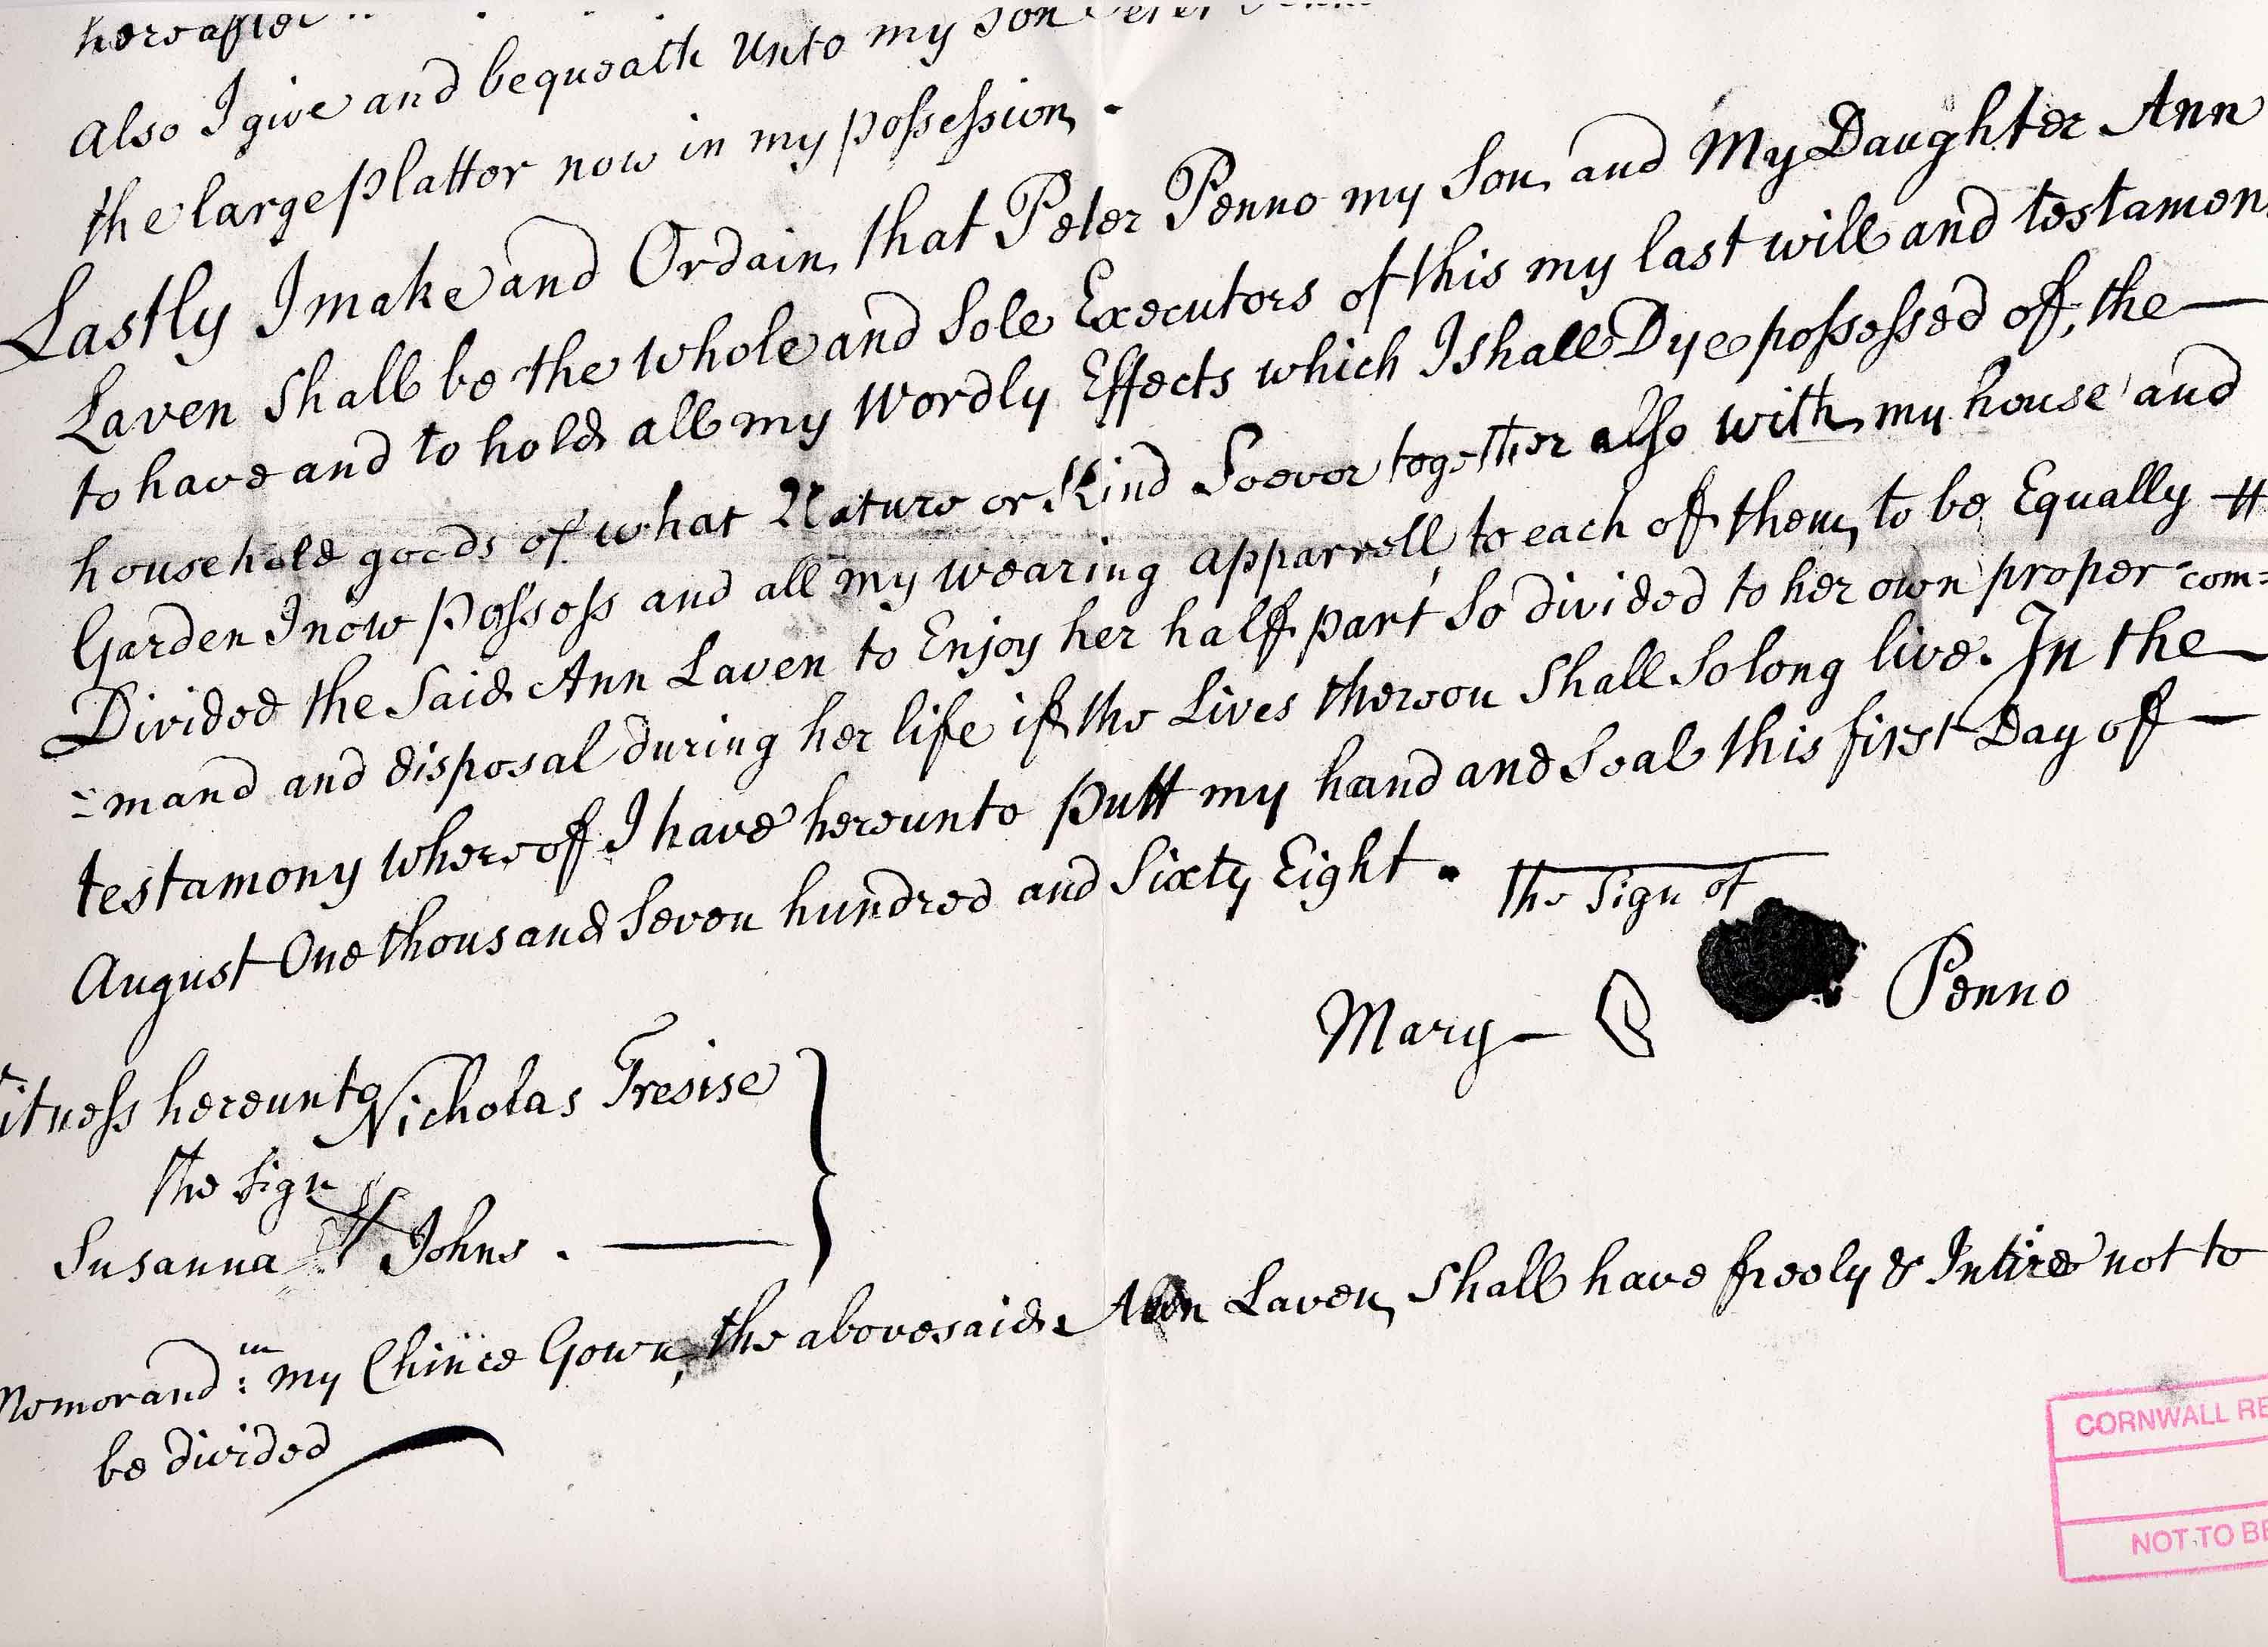 hereafter
Also I give and bequeath Unto my Son Peter
the large platter now in my possession.
Lastly I make and Ordain that Peter Penno my Son and My Daughter Ann
Laven Shall be the whole and Sole Executors of this my last will and testamen
to have and to hold all my Wordly Effects which I shall Dye possessed off, the
household goods of what Nature or Kind Soever together also with my house and
Garden I now possess and all my wearing apparrell, to each of them to be Equally
Divided the Said Ann Laven to Enjoy her half part So divided to her own proper com=
=mand and disposal during her life if the Lives thereon Shall So long live. In the
testamony whereoff I have hereunto putt my hand and Seal this first Day off
August One thousand Seven hundred and Sixty Eight.
the Sign of
Mary Penno
itness hereunto Nicholas Tresise
the Sign
Susanna Johns.
Memorand:m my Chince Gown, the abovesaid Ann Laven Shall have freely & Intire not to
be divided
CORNWALL RE
NOT TO BE